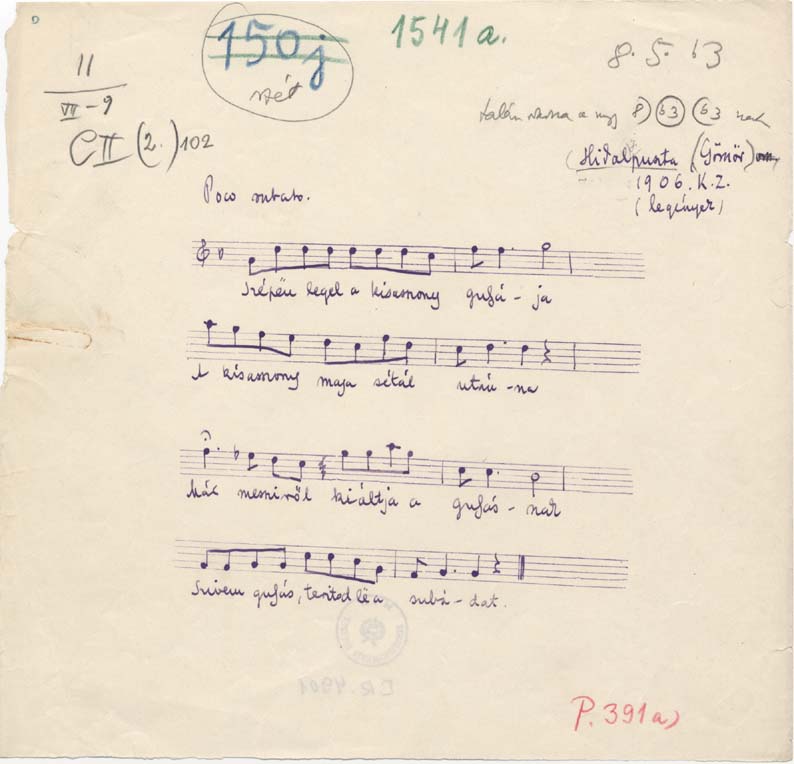 150j
szét
1541a.
8. 5. 63
11
VII-9
C II (2.) 102
talán a 8) 63 (63
(Hidalpuszta (Gömör)
1906. K.Z.
(legények)
Poco rubato.
Szépen legel a kisasszony gulyá - ja
A kisasszony maja sétál utrú - na
Mác messziről kiáltja a gulyás - nak
Szivem gulyás, terítsd lë a subá - dat.
P. 391a)